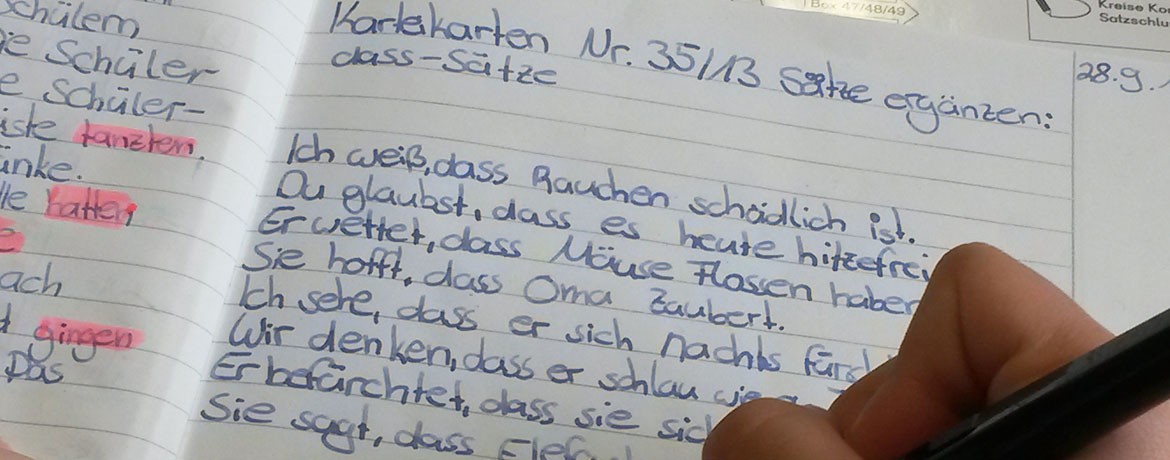 Schülem
Schüler
Schüler-
tanzten.
hatten
ach
gingen
Das
Box 47/48/49
Kreise
Karteikarten Nr. 35/113 Sätze ergänzen:
dass-Sätze
28.9.
Ich weiß, dass Rauchen schädlich ist.
Du glaubst, dass es heute hitzefrei
Er wettet, dass Mäuse Flossen haben
Sie hofft, dass Oma zaubert.
Ich sehe, dass er sich nachts
Wir denken, dass er schlau wie
Er befürchtet, dass sie sich
Sie sagt, dass